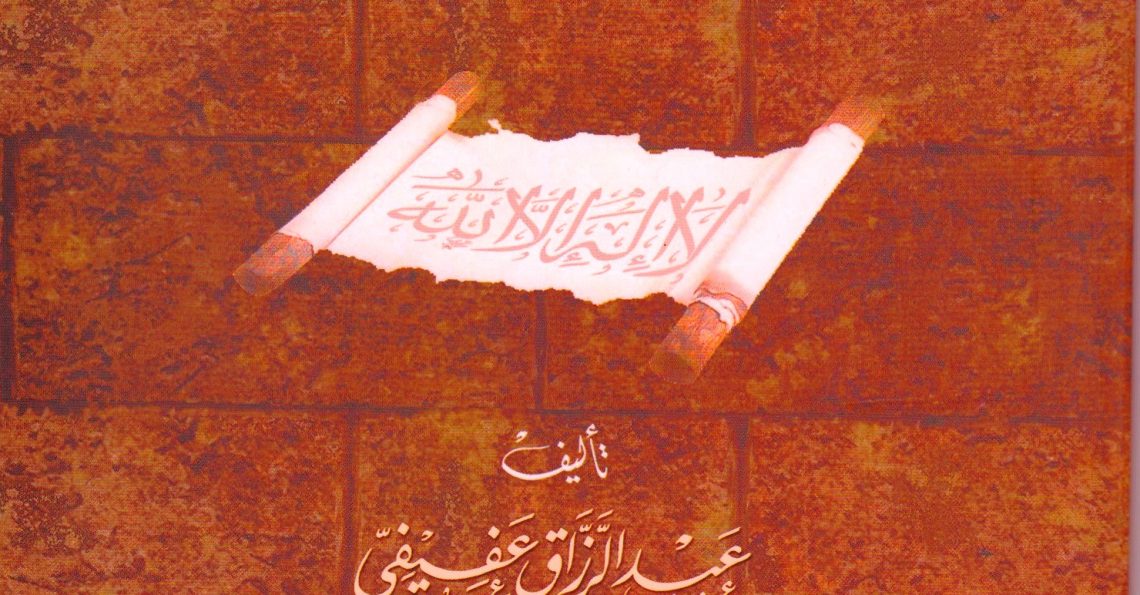 لا إله إلا الله
تأليف
عَبْد الرَّزَّاق عَفِيفِيّ